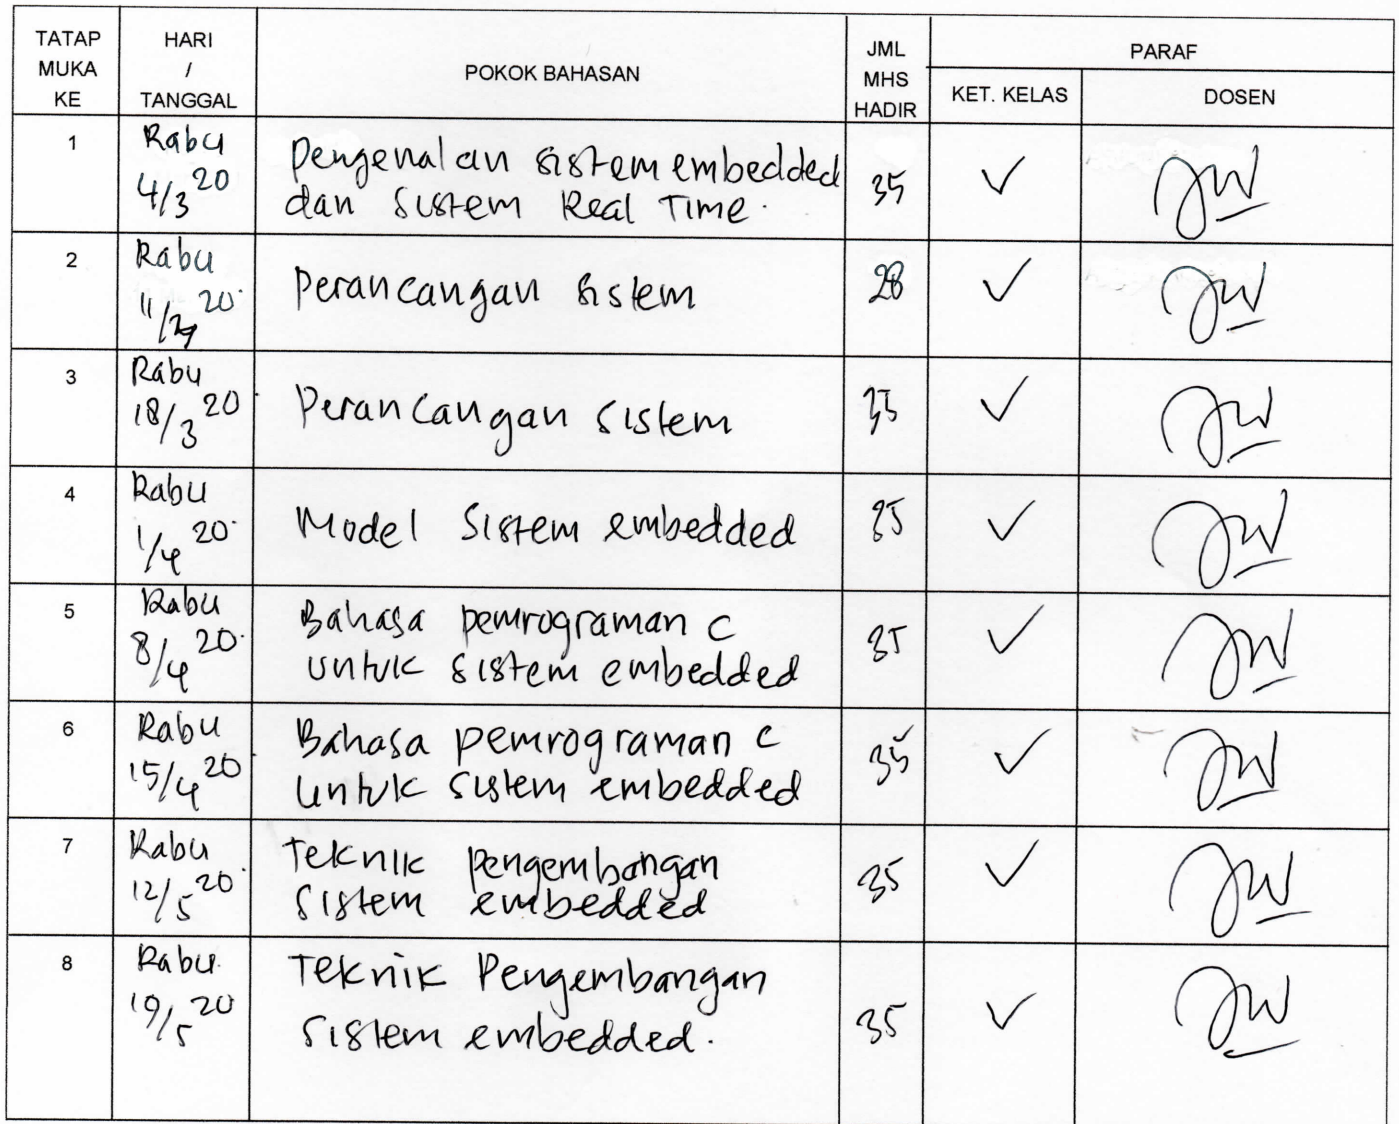 TATAP MUKA KE
HARI / TANGGAL
POKOK BAHASAN
JML MHS HADIR
PARAF
KET. KELAS
DOSEN
1
Rabu
4/3 20
Pengenalan sistem embedded
dan Sistem Real Time.
35
✓
2
Rabu
11/ 20
Perancangan sistem
28
✓
3
Rabu
18/3 20
Perancangan Sistem
35
✓
4
Rabu
1/4 20
Model Sistem embedded
35
✓
5
Rabu
8/4 20
Bahasa pemrograman C
untuk sistem embedded
35
✓
6
Rabu
15/4 20
Bahasa pemrograman C
untuk sistem embedded
35
✓
7
Rabu
12/5 20
Teknik pengembangan
sistem embedded
35
✓
8
Rabu
19/5 20
Teknik Pengembangan
sistem embedded.
35
✓